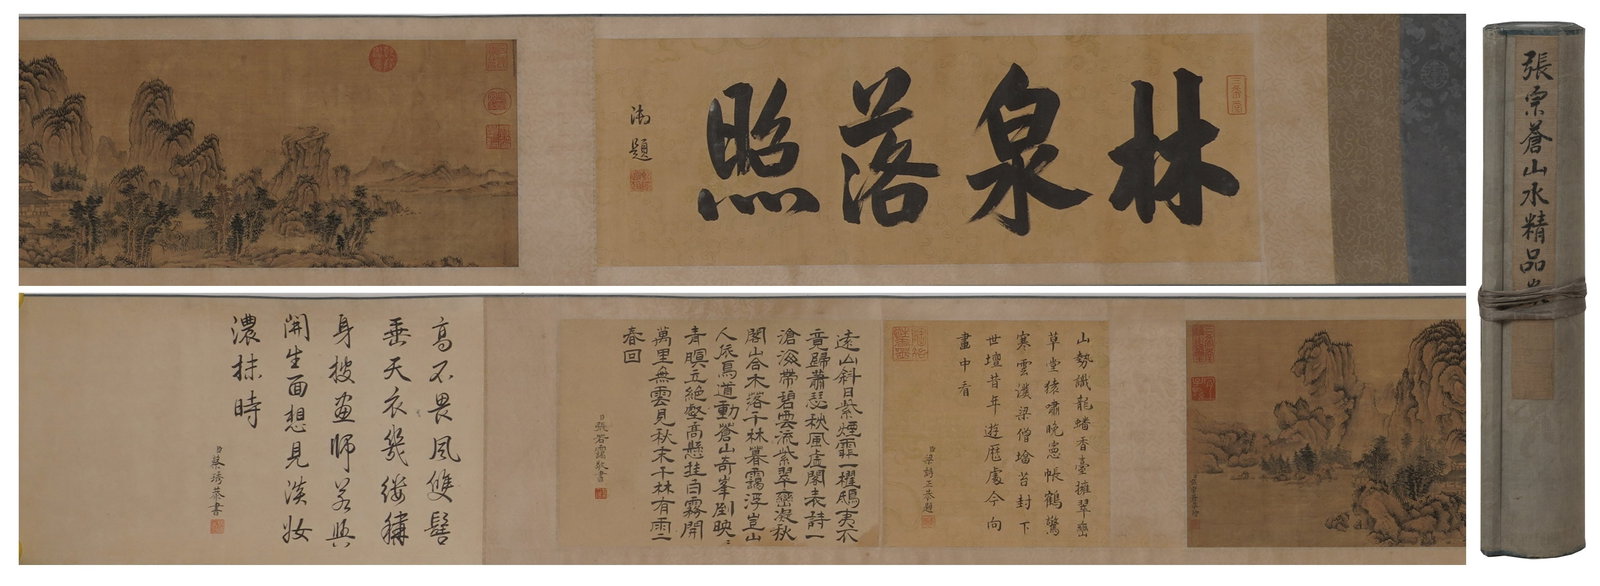 林泉落照
御題
張宗蒼山水精品
山勢識龍蟠香臺擁翠巒
草堂猿嘯晚蕙帳鶴驚
寒雲濮梁僧墖苔封下
世壇昔年遊歷處今向
畫中看
臣梁詩正恭題
遠山斜日紫煙霏一櫂鴟夷不
竟歸蕭瑟秋風虛閣表詩一
滄洲帶碧雲流紫翠巒凝秋
閣山合木落千林暮靄浮豈山
人跡鳥道動蒼山奇峯倒映
青暝立絕壑高懸挂白霧開
萬里無雲見秋末千林有雨一
春回
臣張若靄敬書
高不畏風雙髻
垂天衣幾縷
身披畫師若與
開生面想見淡妝
濃抹時
臣蔡琇恭書